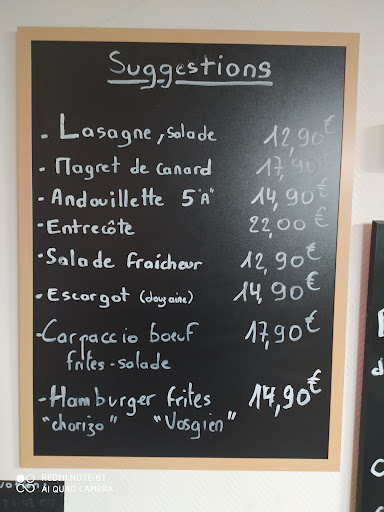 Suggestions
- Lasagne, salade 12,90€
- Magret de canard 17,90€
- Andouillette 5"A" 14,90€
- Entrecôte 22,00€
- Salade Fraîcheur 12,90€
- Escargot (douzaine) 14,90€
- Carpaccio boeuf 17,90€
frites-salade
- Hamburger frites 14,90€
"chorizo" "Vosgien"
REDMI NOTE 8T
AI QUAD CAMERA